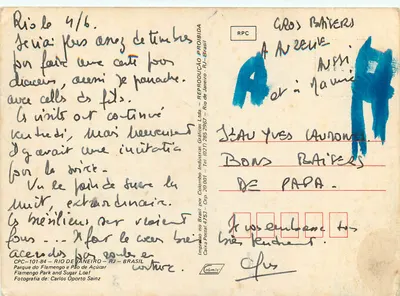 Rio le 4/6.
Je n'ai plus assez de timbres
par faire une carte pour
chacun, aussi je panache.
avec celles des fils.
les visites ont continué
vendredi, mais heureusement
il y avait une invitation
par le soir.
Vu le pain de sucre la
nuit, extraordinaire.
les brésiliens sur
fous ... X faut le cœur bien
accroché par
voiture.
CPC-101-84 – RIO DE JANEIRO – RJ – BRASIL
Parque do Flamengo e Pão de Açúcar
Flamengo Park and Sugar Loaf
Fotografia de: Carlos Oporto Sainz
Impresso no Brasil por Colombo Indústrias Gráficas Ltda. – REPRODUÇÃO PROIBIDA
RPC
GROS BAISERS
A
AUSSI
et à
JEAN YVES
BONS BAISERS
DE PAPA.
Je vous embrasse tous
très tendrement.